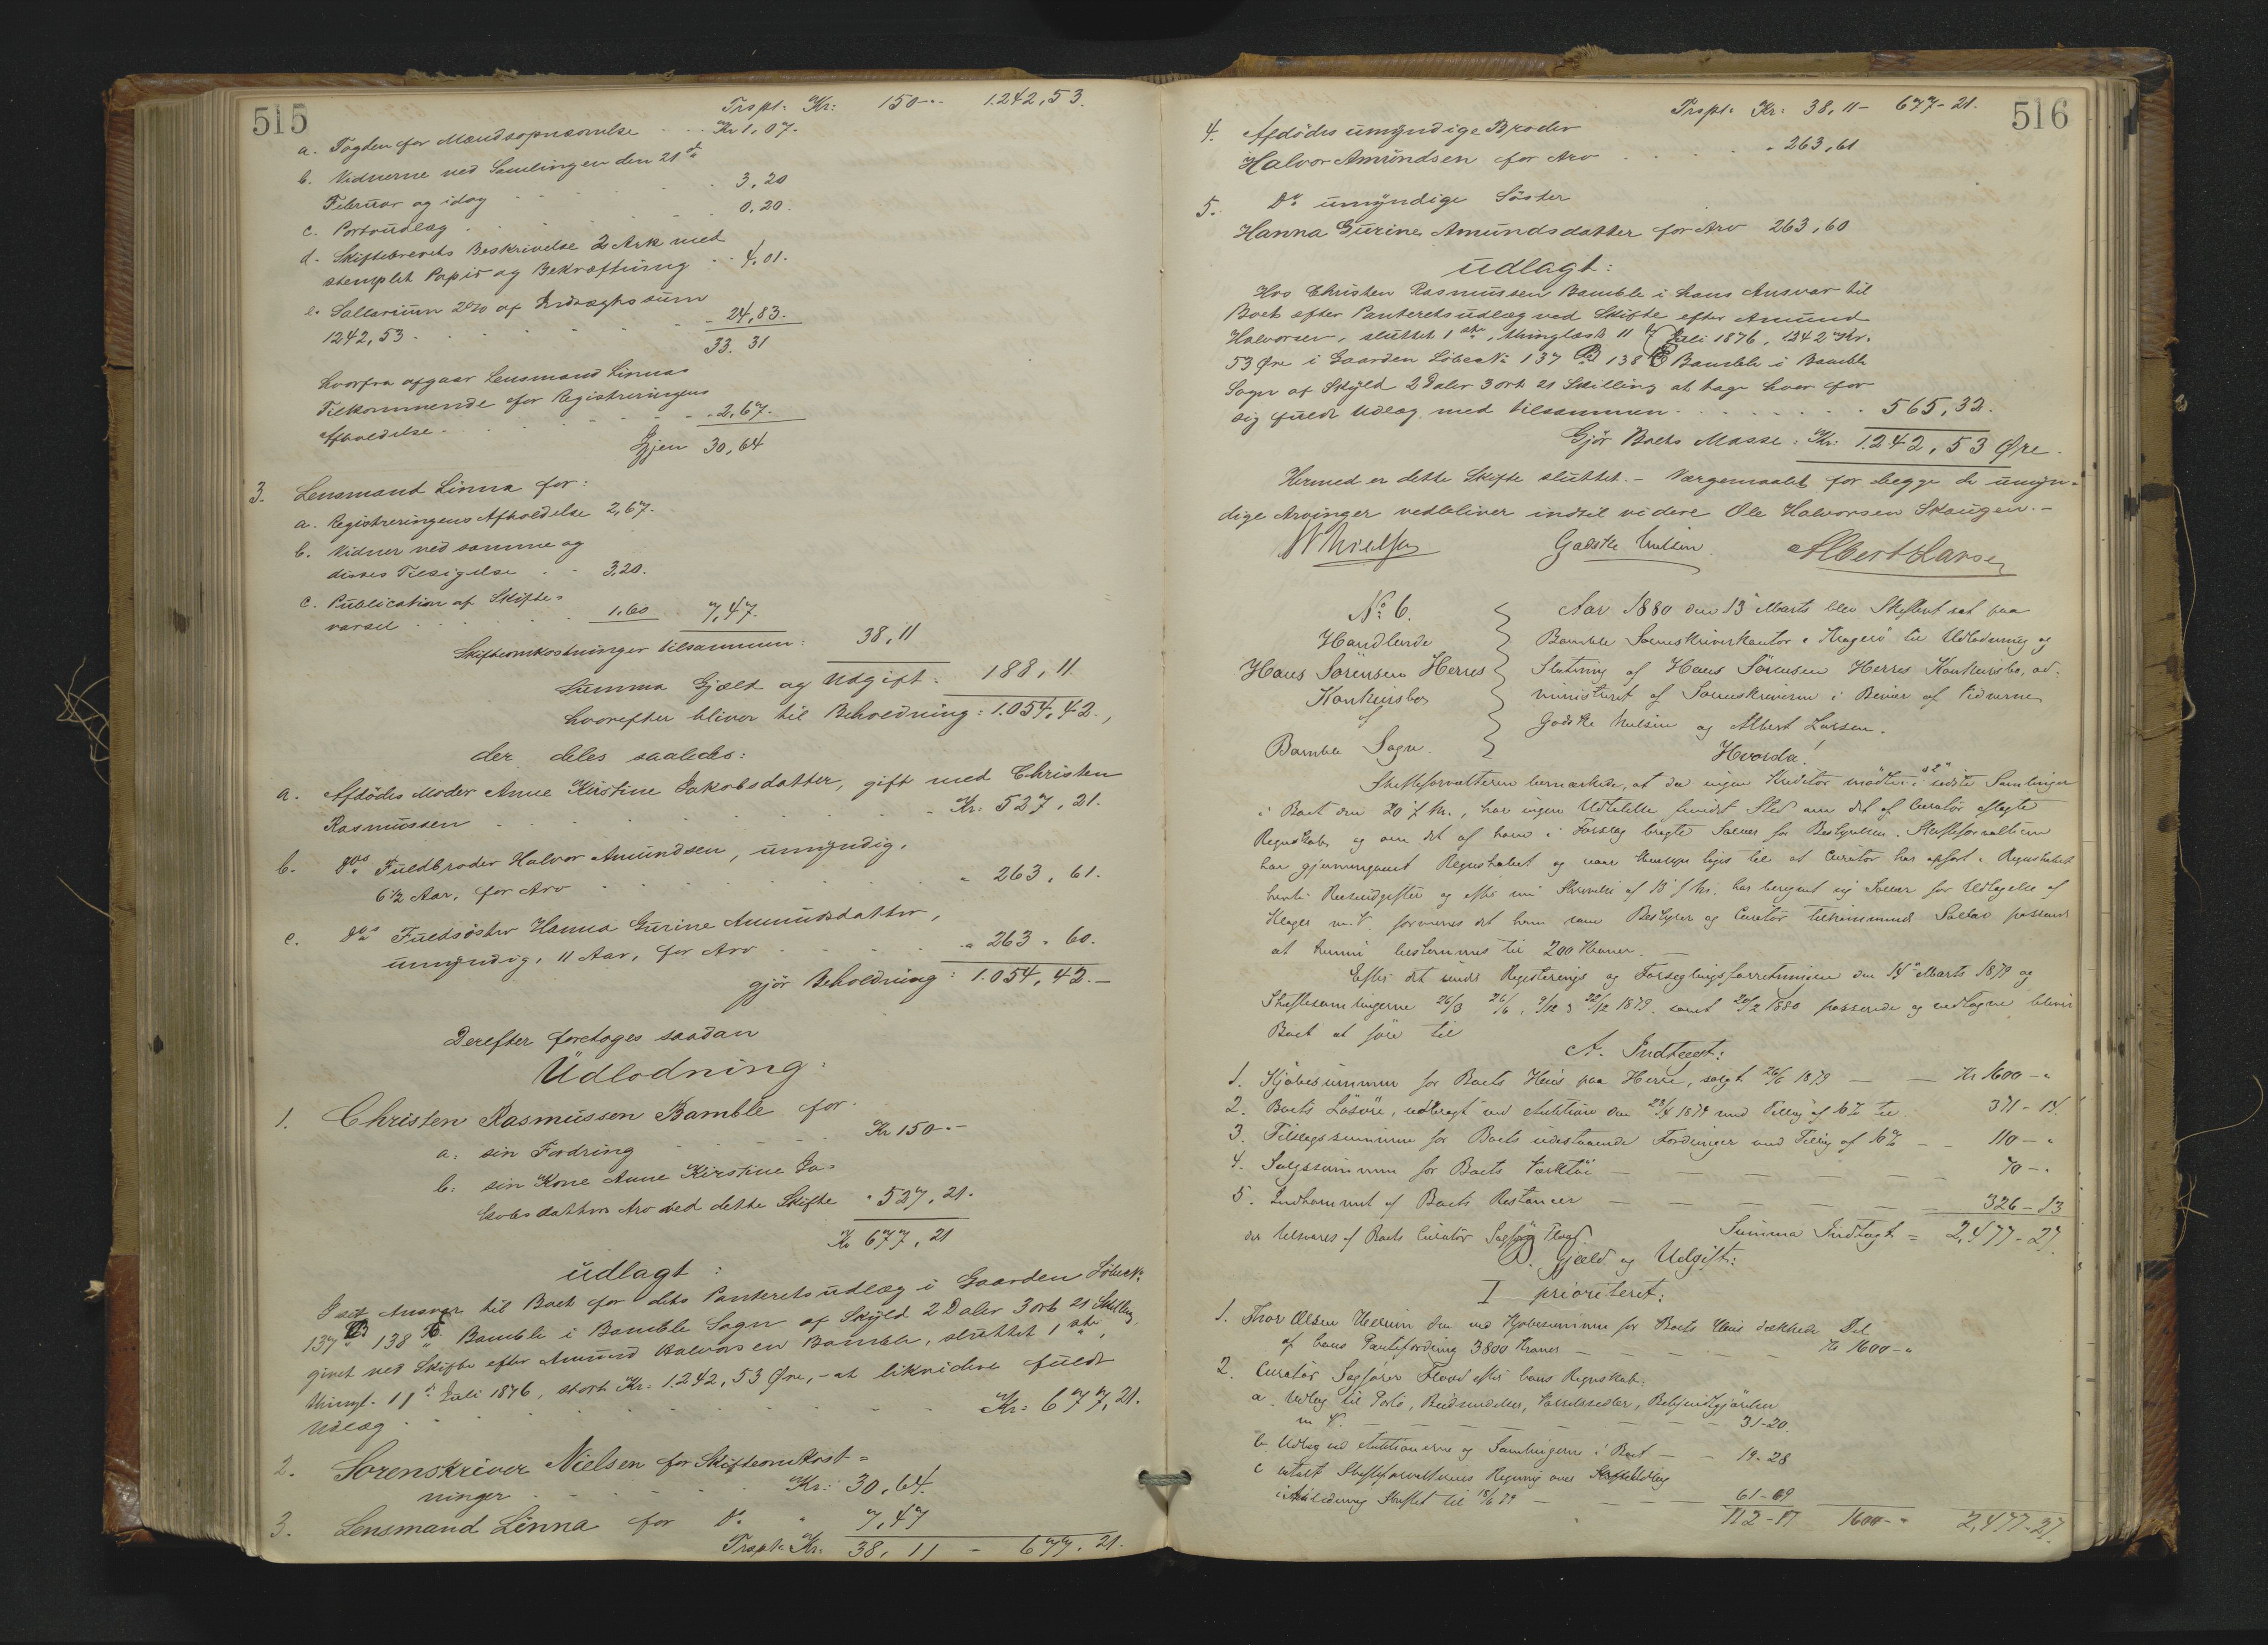 515
Trspt. Kr: 150-" 1.242,53.
a. Fogden for Mændsopnævnelse . . . Kr 1,07.
b. Vidnerne ved Samlingen den 21de
Februar og idag . . . 3,20
c. Portoudlæg . . . 0,20.
d. Skiftebrevets Beskrivelse 2 Ark med
stemplet Papir og Bekræftning . . 4,01.
e. Sallarium 2% af Indtægtssum
1242,53 . . . 24,83.
33.31
hvorfra afgaar Lensmand Linnas
Tilkommende for Registreringens
Afholdelse . . . 2,67.
Igjen 30,64
3. Lensmand Linna for:
a. Registreringens Afholdelse 2,67.
b. Vidner ved samme og
disses Tilsigelse . . 3,20.
c. Publication af Skifte=
varsel . . . 1,60 7,47.
Skifteomkostninger tilsammen: 38,11
Summa Gjæld og Udgift: 188,11
hvorefter bliver til Beholdning: 1.054,42.,
der deles saaledes:
a. Afdødes Moder Anne Kirstine Jakobsdatter, gift med Christen
Rasmussen . . . Kr: 527,21.
b. Dos Fuldbroder Halvor Amundsen, umyndig,
6½ Aar, for Arv . . . " 263,61.
c. Dos Fuldsøster Hanna Gurine Amundsdatter,
umyndig, 11 Aar, for Arv . . . " 263,60.
gjør Beholdning: 1.054,42.-
Derefter foretoges saadan
Udlodning:
1. Christen Rasmussen Bamble for:
a: sin Fordring . . . Kr 150.-
b: sin Kone Anne Kirstine Ja=
kobsdatters Arv ved dette Skifte " 527,21.
Kr 677,21
udlagt:
I sit Ansvar til Boet for dets Panteretsudlæg i Gaarden Løbe No
137 B 138 E Bamble i Bamble Sogn af Skyld 2 Daler 3 ort 21 Skilling,
givet ved Skifte efter Amund Halvorsen Bamble, sluttet 1ste,
thingl. 11te Juli 1876, stort Kr. 1.242,53 Øre, - at likvidere fuldt
Udlæg . . . Kr: 677,21.
2. Sorenskriver Nielsen for Skifteomkost=
ninger . . . Kr: 30,64.
3. Lensmand Linna for Do " 7,47
Trspt. Kr. 38,11 - 677,21.
516
Trspt. Kr: 38,11 - 677-21.
4. Afdødes umyndige Broder
Halvor Amundsen for Arv . . . " 263,61
5. Ds umyndige Søster
Hanna Gurine Amundsdatter for Arv 263,60
udlagt:
Hos Christen Rasmussen Bamble i hans Ansvar til
Boet efter Panteretsudlæg ved Skifte efter Amund
Halvorsen, sluttet 1ste, thinglæst 11te Juli 1876, 1242 Kr.
53 Øre i Gaarden Løbe No 137 B 138 E Bamble i Bamble
Sogn af Skyld 2 Daler 3 ort 21 Skilling at tage hver for
sig fuldt Udlæg med tilsammen . . . 565,32.
Gjør Boets Masse: Kr: 1.242,53 Øre.
Hermed er dette Skifte sluttet. - Værgemaalet for begge de umyn=
dige Arvinger vedbliver indtil videre Ole Halvorsen Skaugen.-
Nielsen Godske Nielsen. Albert Larsen
No 6.
Handlende
Hans Sørensen Herres
Konkursbo
af
Bamble Sogn.
Aar 1880 den 13de Marts blev Skifteret sat paa
Bamble Sorenskriverkontor i Kragerø til Udlodning og
Slutning af Hans Sørensen Herres Konkursbo, ad=
ministreret af Sorenskriveren i Bivær af Vidnerne
Godske Nielsen og Albert Larsen.
Hvorda!
Skifteforvalteren bemærkede, at da ingen Kreditor mødte i sidste Samlinger
i Boet den 20 f. M., har ingen Udtalelse fundet Sted om det af Curator aflagte
Regnskab, og om det af ham i Forslag bragte Salær for Bestyrelsen. Skifteforvalteren
har gjennemgaaet Regnskabet og naar Hensyn tages til at Curator har opført i Regnskabet
Reiseudgifter og efter sin Skrivelse af 13 f. M. har beregnet sig Salær for Udtagelse af
Klager m.V. formenes det ham som Bestyrer og Curator tilkommende Salær passende
at kunne bestemmes til 200 Kroner.
Efter det under Registrerings og Forseglingsforretningen den 14de Marts 1879 og
Skiftesamlingerne 26/3 26/6, 9/12 & 22/12 1879, samt 20/2 1880 passerede og vedtagne bliver
Boet at føre til
A. Indtægt:
1. Kjøbesummen for Boets Huus paa Herre, solgt 26/6 1879 - - Kr 1600-"
2. Boets Løsøre, udbragt ved Auktion den 28/4 1879 med Tillæg af % til 371-14.
3. Tilslagssummen for Boets udestaaende Fordringer med Tillæg af % - - 110-"
4. Salgssummen for Boets Værktøi - - - 70-"
5. Indkommet af Boets Restancer - - - 326-13
der tilsvares af Boets Curator Sagfører Flood Summa Indtægt = 2,477-27.
B. Gjæld og Udgift:
I prioriteret:
1. Thor Olsen den ved Kjøbesummen for Boets Huus dækkede Del
af hans Pantefordring 3800 Kroner - - - Kr 1600-"
2. Curator Sagfører Flood efter hans Regnskab:
a. Udlæg til Porto, Budsendelser, Varselssedler, Bekjendtgjørelser
m V. - - - 31-20.
b. Udlæg ved Auktionerne og Samlingerne i Boet - - 19-28
c betalt Skifteforvalterens Regning over Udlæg
i Anledning Skiftet til 18/6 79 - - - 61-69
112-17 1600-" 2,477-27.